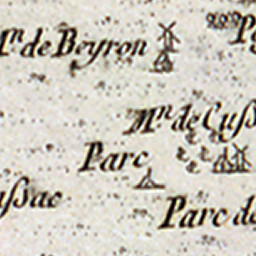 Mn de Beyron
Mn de Cuss
Parc
ussac
Parc de